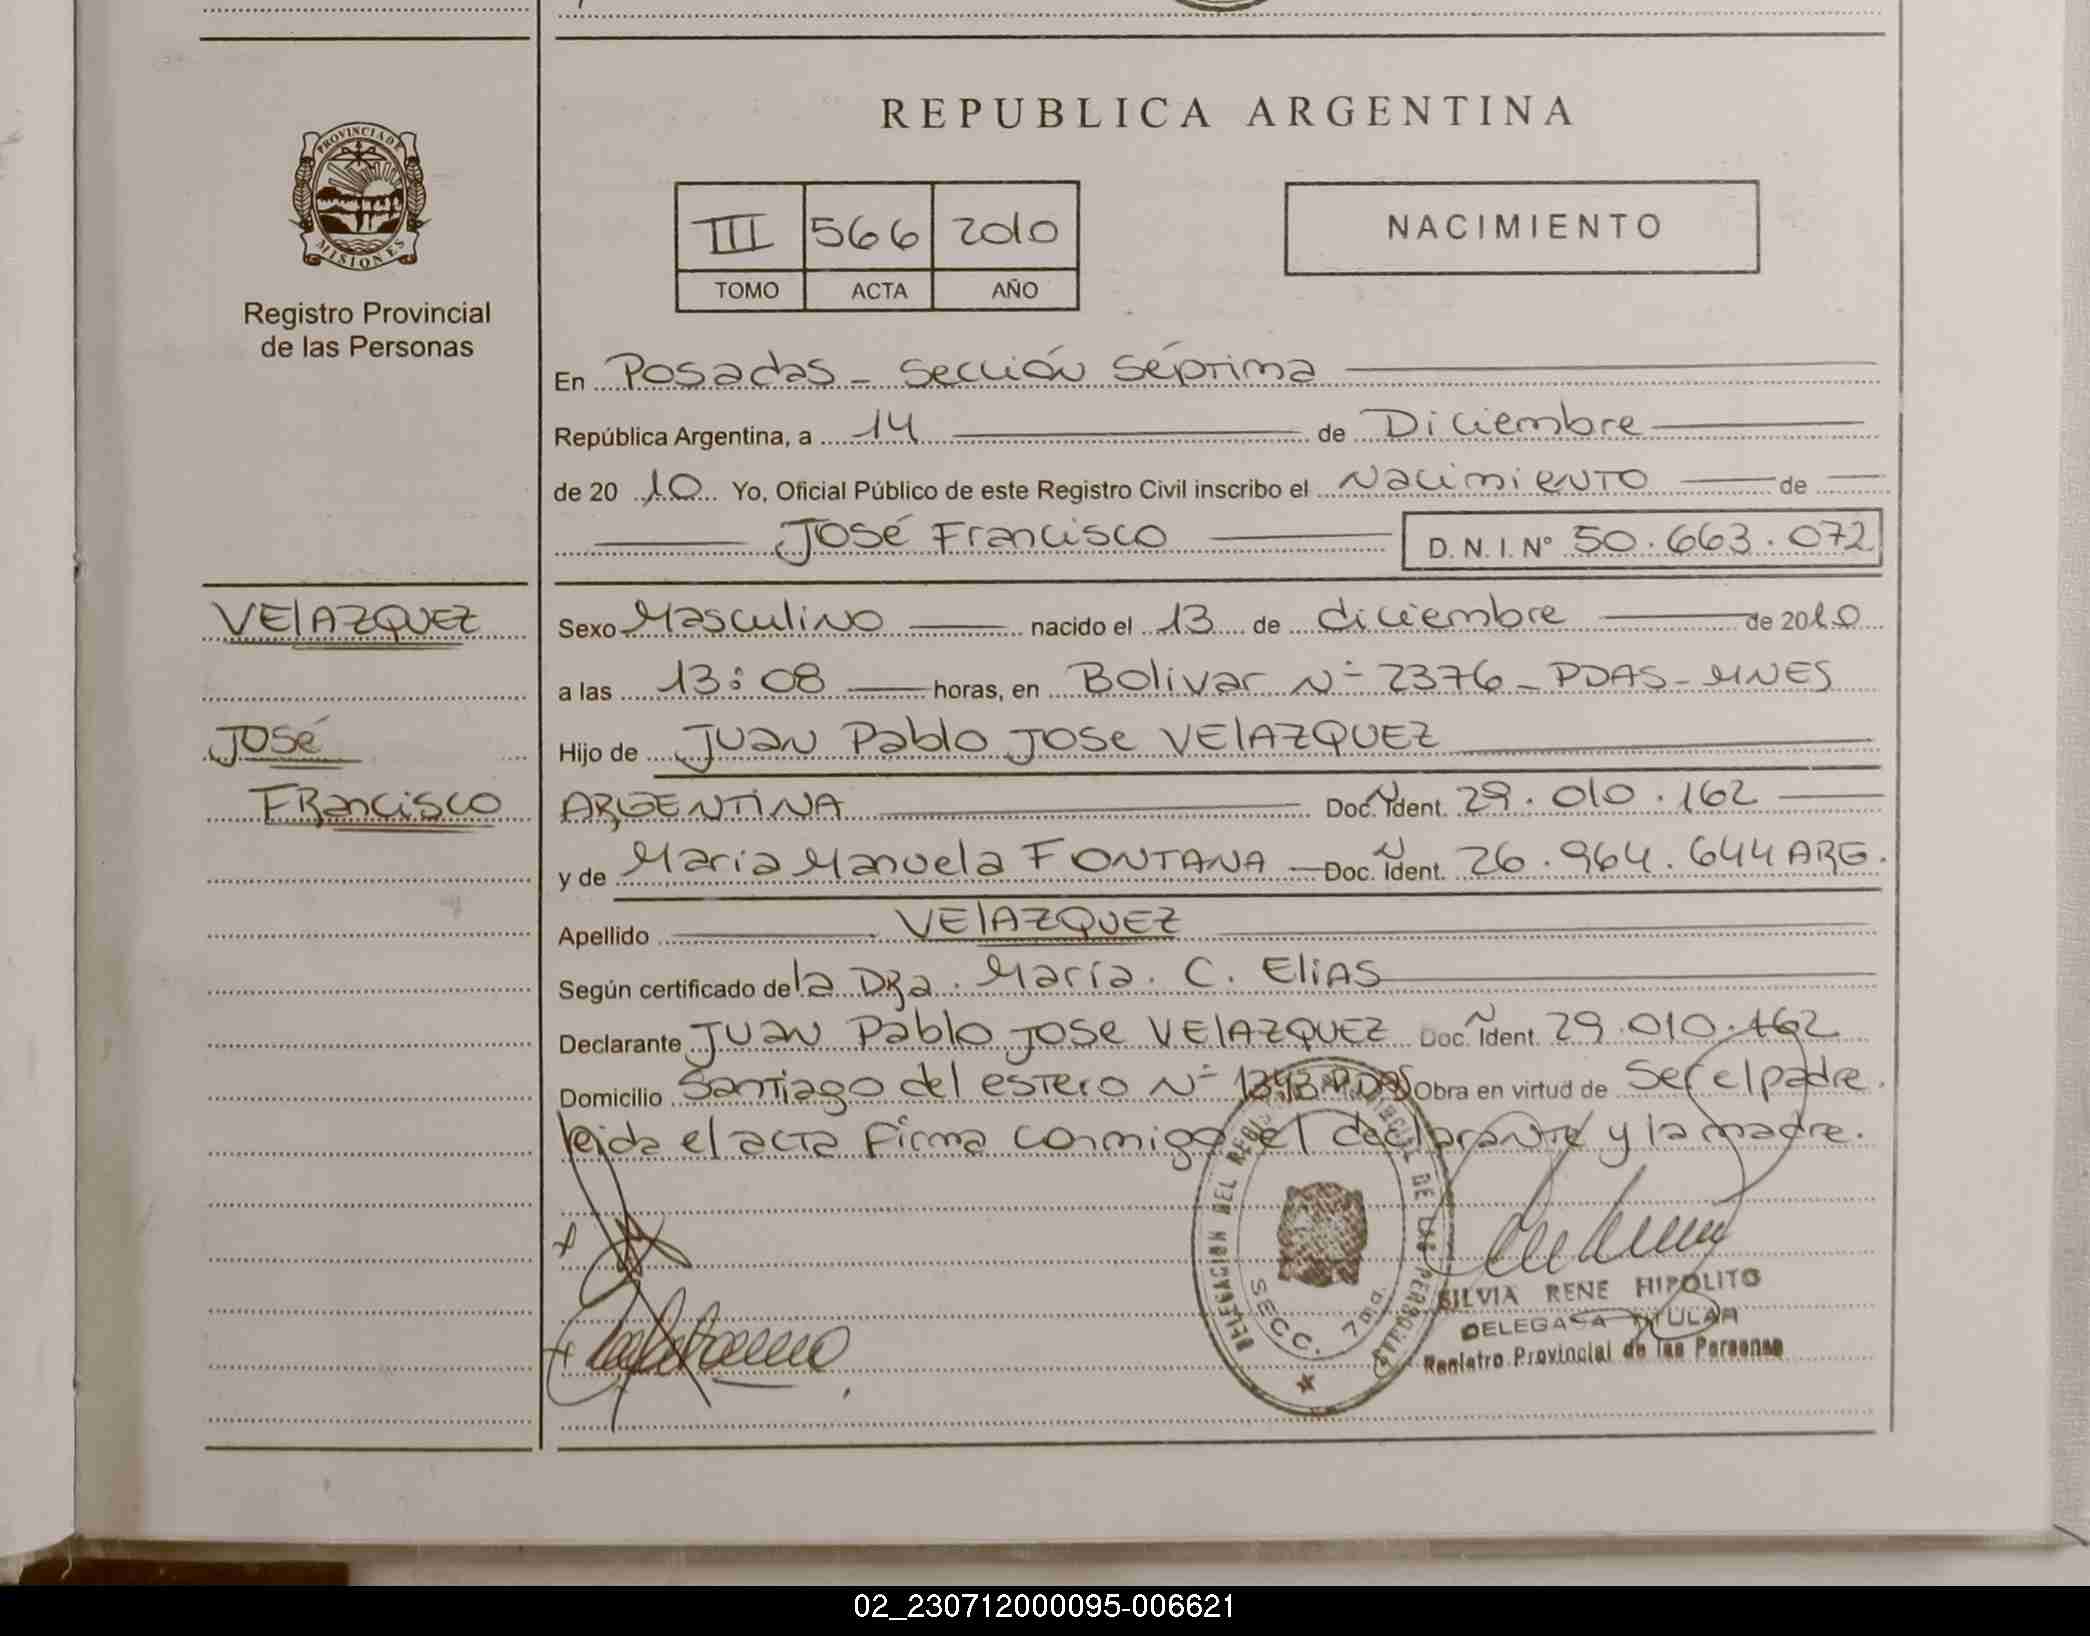 REPUBLICA ARGENTINA
PROVINCIA DE
MISIONES
Registro Provincial
de las Personas
III 566 2010
TOMO ACTA AÑO
NACIMIENTO
En Posadas - Sección Séptima
República Argentina, a 14 de Diciembre
de 20 10 Yo, Oficial Público de este Registro Civil inscribo el Nacimiento de
José Francisco D. N. I. N° 50.663.072
VELAZQUEZ
José
Francisco
Sexo Masculino nacido el 13 de diciembre de 2010
a las 13:08 horas, en Bolivar N° 2376 - PDAS - MNES
Hijo de Juan Pablo Jose VELAZQUEZ
ARGENTINA Doc. Ident. 29.010.162
y de Maria Manuela FONTANA Doc. Ident. 26.964.644 ARG.
Apellido VELAZQUEZ
Según certificado de la Dra. María. C. Elias
Declarante Juan Pablo Jose VELAZQUEZ Doc. Ident. 29.010.162
Domicilio Santiago del estero N° 1343 PDAS Obra en virtud de Ser el padre.
leida el acta firma conmigo el declarante y la madre.
DELEGACION DEL REGISTRO PROVINCIAL DE LAS PERSONAS
SECC. 7ma.
SILVIA RENE HIPOLITO
DELEGADA TITULAR
Registro Provincial de las Personas
02_230712000095-006621